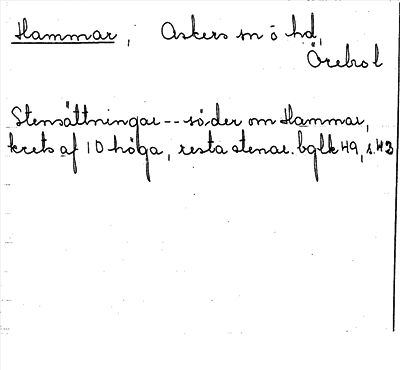 Hammar, Askers sn o hd,
Örebro l
Stensättningar -- söder om Hammar,
krets af 10 höga, resta stenar. bglk H9, s. 43